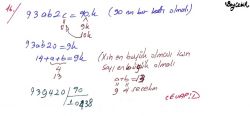 16/ 93ab2c = 90k (90 ın bir katı olmalı)
9k 10k
93ab20 = 9k
14+a+b = 9k (k'in en büyük olmalı ki
4 sayı en büyük olmalı
13 a+b=13
9 4 seçelim
939420 | 90
10438
CEVAP D